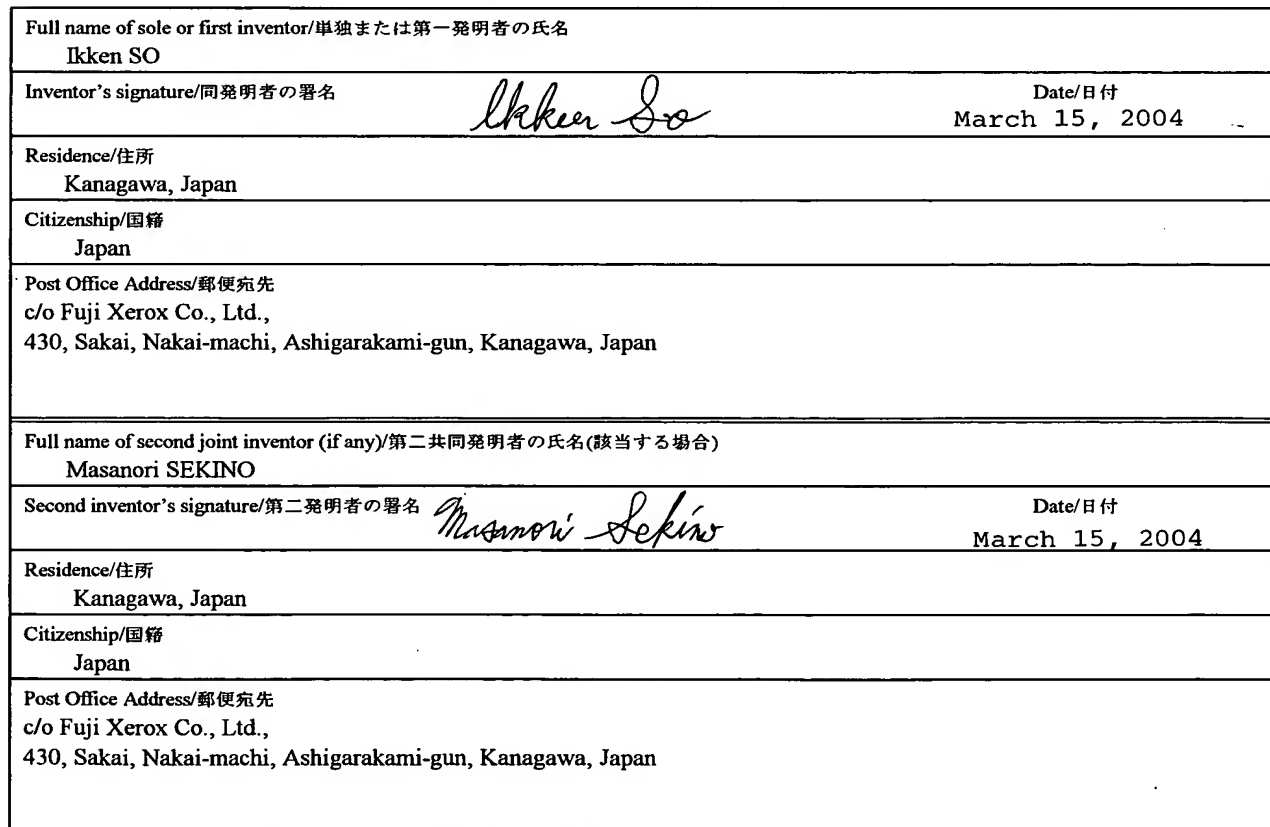 Full name of sole or first inventor/単独または第一発明者の氏名
Ikken SO
Inventor's signature/同発明者の署名 Ikken So Date/日付
March 15, 2004
Residence/住所
Kanagawa, Japan
Citizenship/国籍
Japan
Post Office Address/郵便宛先
c/o Fuji Xerox Co., Ltd.,
430, Sakai, Nakai-machi, Ashigarakami-gun, Kanagawa, Japan
Full name of second joint inventor (if any)/第二共同発明者の氏名(該当する場合)
Masanori SEKINO
Second inventor's signature/第二発明者の署名 Masanori Sekino Date/日付
March 15, 2004
Residence/住所
Kanagawa, Japan
Citizenship/国籍
Japan
Post Office Address/郵便宛先
c/o Fuji Xerox Co., Ltd.,
430, Sakai, Nakai-machi, Ashigarakami-gun, Kanagawa, Japan